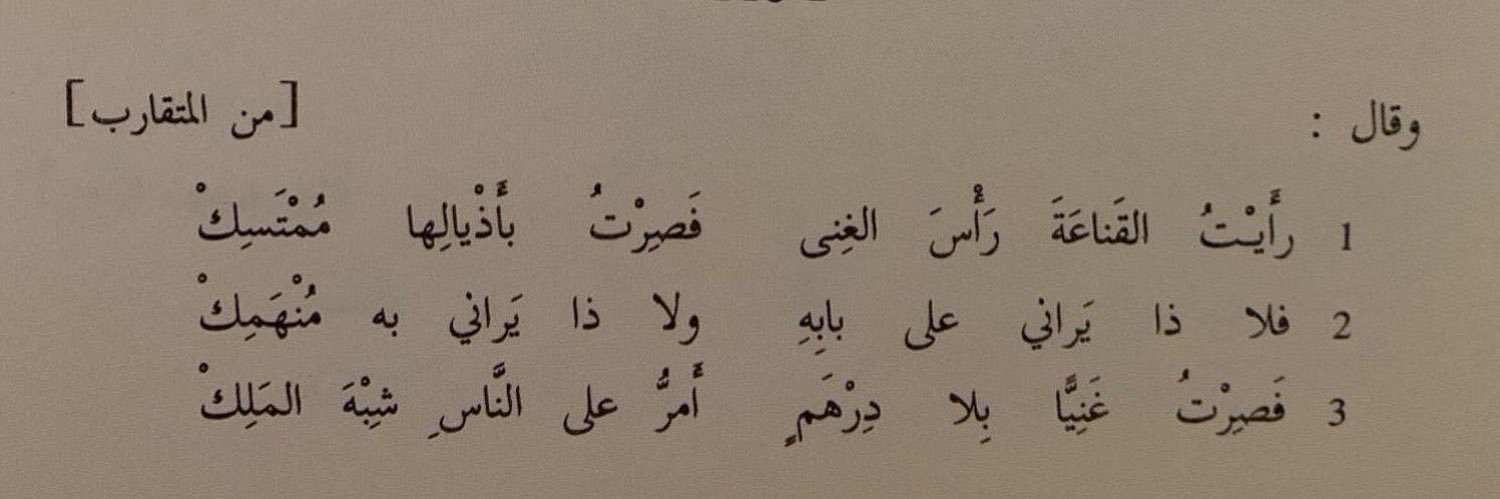 وقال : [من المتقارب]
1 رأَيْتُ القَناعَةَ رَأْسَ الغِنى فَصِرْتُ بأَذْيالِها مُمْتَسِكْ
2 فلا ذا يَراني على بابِهِ ولا ذا يَراني به مُنْهَمِكْ
3 فَصِرْتُ غَنِيًّا بِلا دِرْهَمٍ أَمرُّ على النَّاسِ شِبْهَ المَلِكْ